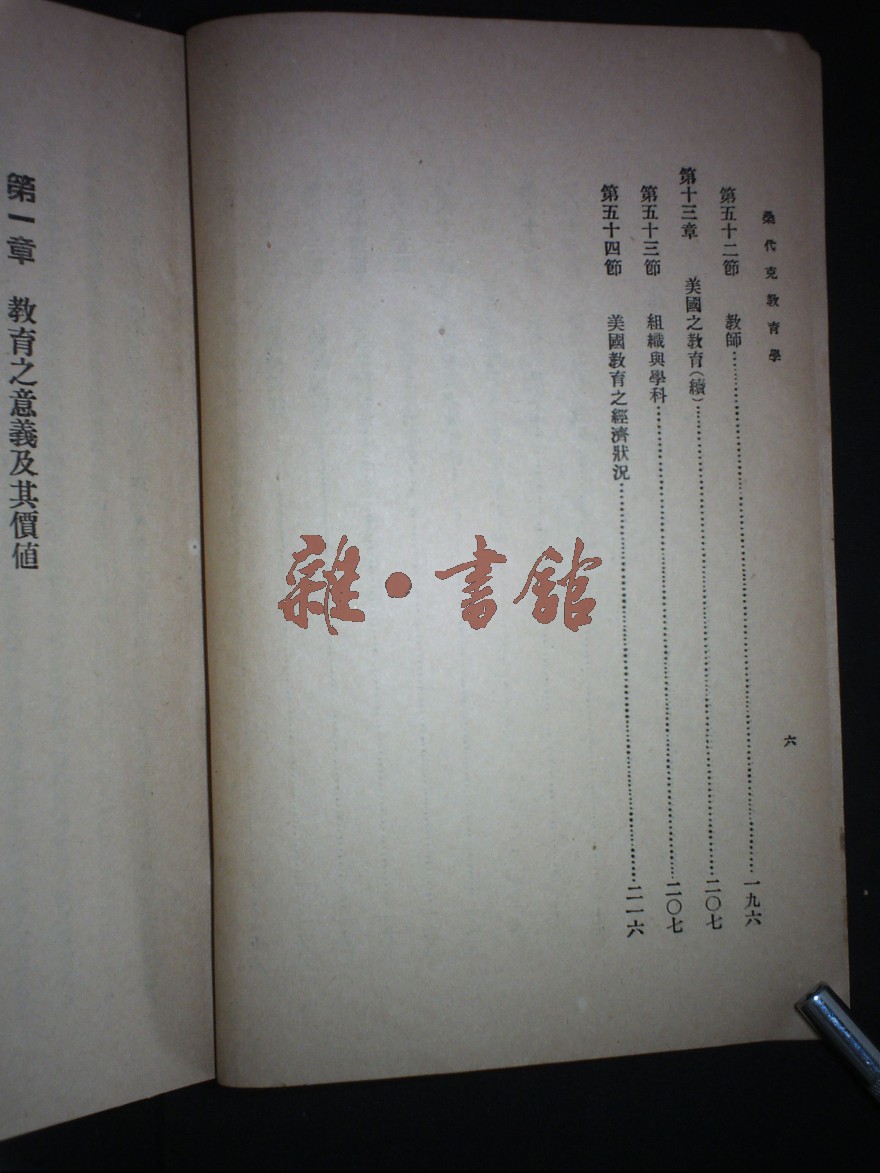 桑代克教育學
六
第五十二節 教師……一九六
第十三章 美國之教育(續)……二〇七
第五十三節 組織與學科……二〇七
第五十四節 美國教育之經濟狀況……二一六
雜·書館
第一章 教育之意義及其價值